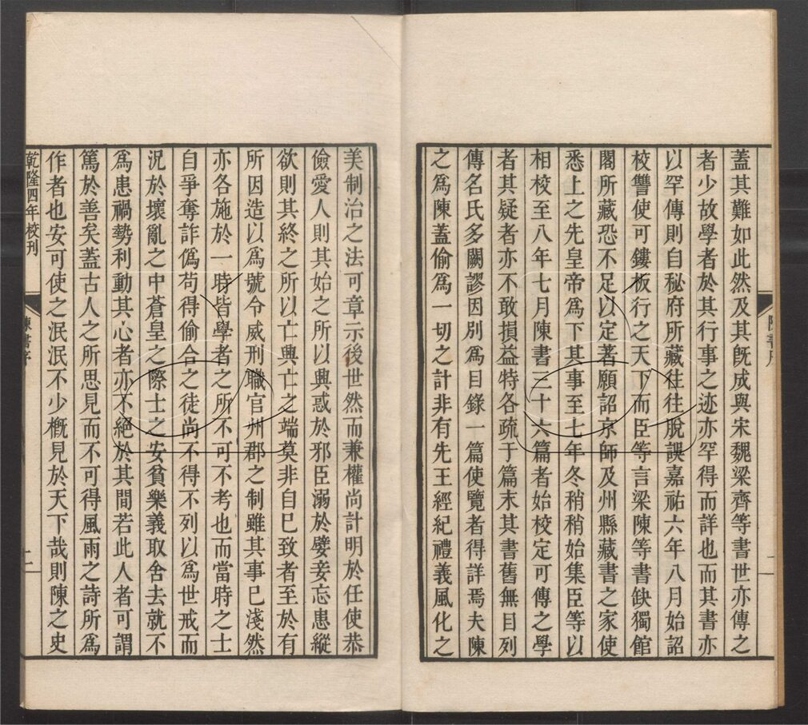 蓋其難如此然及其旣成與宋魏梁齊等書世亦傳之
者少故學者於其行事之迹亦罕得而詳也而其書亦
以罕傳則自秘府所藏往往脫誤嘉祐六年八月始詔
校讐使可鏤板行之天下而臣等言梁陳等書缺獨館
閣所藏恐不足以定著願詔京師及州縣藏書之家使
悉上之先皇帝爲下其事至七年冬稍稍始集臣等以
相校至八年七月陳書三十六篇者始校定可傳之學
者其疑者亦不敢損益特各疏于篇末其書舊無目列
傳名氏多闕謬因別爲目錄一篇使覽者得詳焉夫陳
之爲陳蓋偷爲一切之計非有先王經紀禮義風化之
美制治之法可章示後世然而兼權尚計明於任使恭
儉愛人則其始之所以興惑於邪臣溺於嬖妾忘患縱
欲則其終之所以亡興亡之端莫非自己致者至於有
所因造以爲號令威刑職官州郡之制雖其事已淺然
亦各施於一時皆學者之所不可不考也而當時之士
自爭奪詐僞苟得偷合之徒尚不得不列以爲世戒而
況於壞亂之中蒼皇之際士之安貧樂義取舍去就不
爲患禍勢利動其心者亦不絕於其間若此人者可謂
篤於善矣蓋古人之所思見而不可得風雨之詩所爲
作者也安可使之泯泯不少槪見於天下哉則陳之史
乾隆四年校刊
陳書序
二